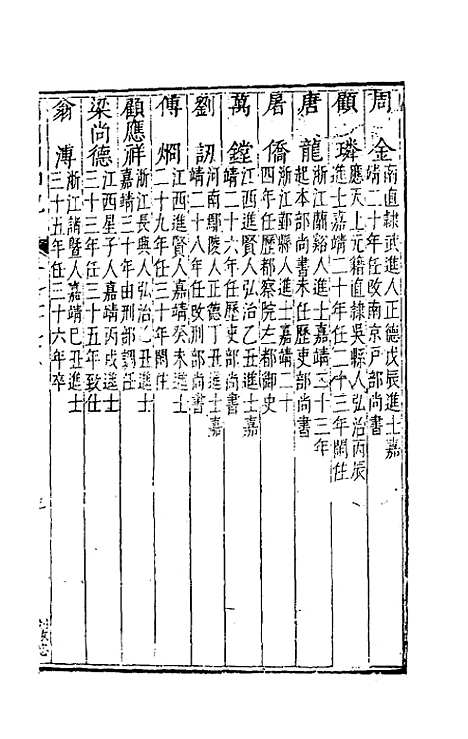 周金 南直隸武進人正德戊辰進士嘉
靖二十年任改南京戶部尚書
顧璘 應天上元籍直隸吳縣人弘治丙辰
進士嘉靖二十年任二十三年閑住
唐龍 浙江蘭谿人進士嘉靖二十三年
起本部尚書未任歷吏部尚書
屠僑 浙江鄞縣人進士嘉靖二十
四年任歷都察院左都御史
萬鏜 江西進賢人弘治乙丑進士嘉
靖二十六年任歷吏部尚書
劉訒 河南鄢陵人正德丁丑進士嘉
靖二十八年任改刑部尚書
傅烱 江西進賢人嘉靖癸未進士
二十九年任三十年閑住
顧應祥 浙江長興人弘治乙丑進士
嘉靖三十年由刑部調任
梁尚德 江西星子人嘉靖丙戌進士
三十三年任三十五年致仕
翁溥 浙江諸暨人嘉靖己丑進士
三十五年任三十六年卒